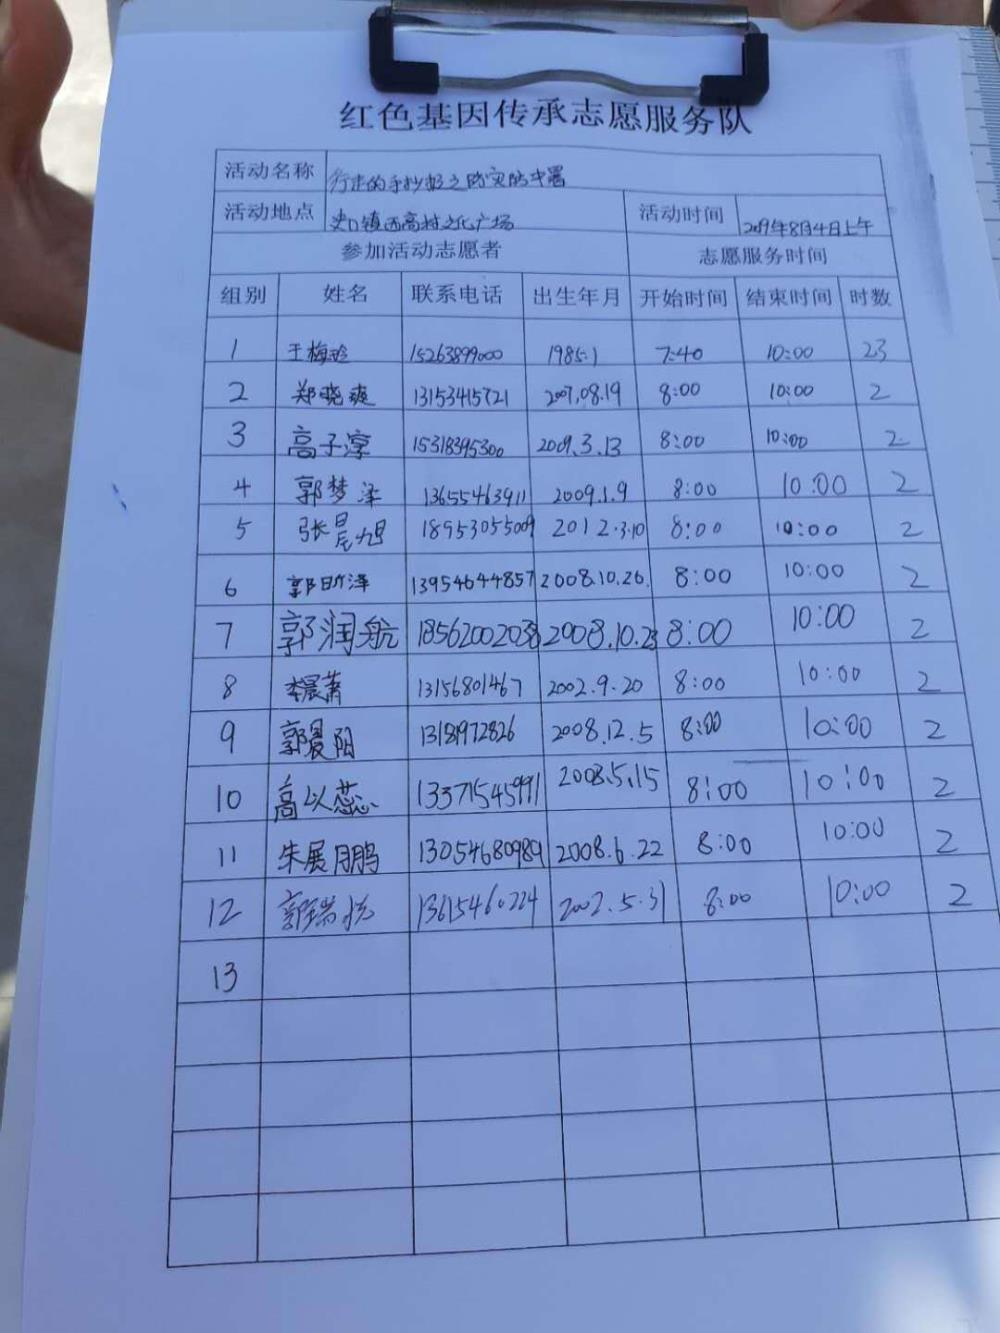 红色基因传承志愿服务队
活动名称 行走的手抄报之防灾防中暑
活动地点 史口镇西高村文化广场 活动时间 2019年8月4日上午
参加活动志愿者 志愿服务时间
组别 姓名 联系电话 出生年月 开始时间 结束时间 时数
1 王梅珍 15263899000 1985.1 7:40 10:00 23
2 郑晓爽 13153415721 2007.08.19 8:00 10:00 2
3 高子淳 15318395300 2009.3.13 8:00 10:00 2
4 郭梦泽 13655463911 2009.1.9 8:00 10:00 2
5 张晨旭 18953055009 2012.3.10 8:00 10:00 2
6 郭昕泽 13954644857 2008.10.26. 8:00 10:00 2
7 郭润航 18562002038 2008.10.23 8:00 10:00 2
8 李晨菁 13156801467 2002.9.20 8:00 10:00 2
9 郭晨阳 13181972826 2008.12.5 8:00 10:00 2
10 高以蕊 13371545991 2008.5.15 8:00 10:00 2
11 朱展鹏 13054680989 2008.6.22 8:00 10:00 2
12 郭瑞 13615460224 2002.5.31 8:00 10:00 2
13